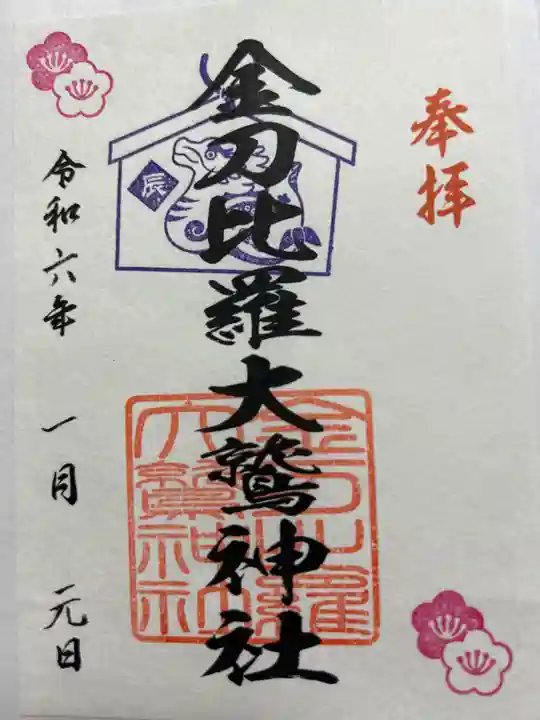 奉拝
金刀比羅大鷲神社
辰
金刀比羅
大鷲神社
令和六年 一月 元日